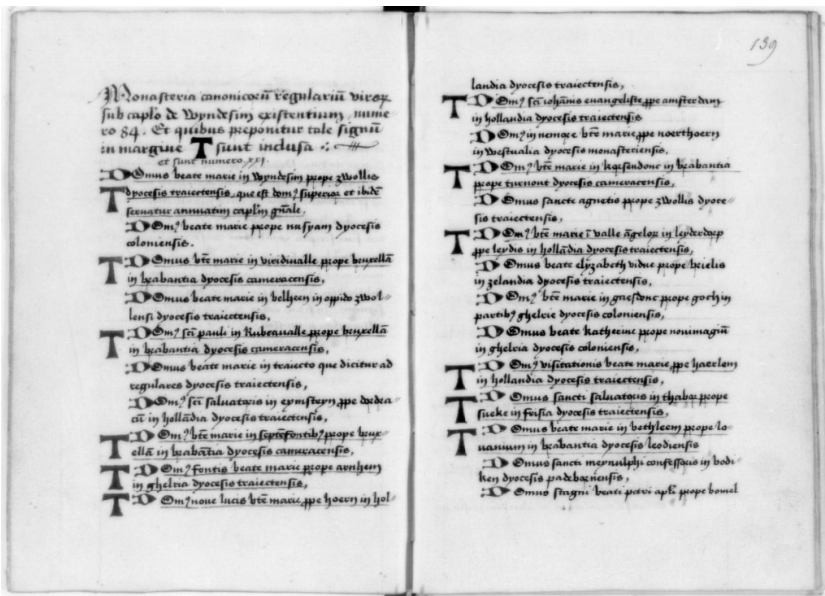 Monasteria canonicoꝝ regulariū viroꝝ
sub caplo de Wyndesim existentium, nume
ro 84. Et quibus preponitur tale signū
in margine T sunt inclusa
et sunt numero xxi.
Domus beate marie in wyndesim prope zwollis
T dyocesis traiectensis, que est domꝰ superior et ibidē
seruatur annuatim capl'm gn̄ale,
Domꝰ beate marie prope nusyam dyocesis
coloniensis.
T Domus btē marie in viridiualle prope bruxellā
in brabantia dyocesis cameracensis,
Domus beate marie in belhem in oppido zwol-
lensi dyocesis traiectensis,
T Domꝰ scī pauli in Rubeaualle prope bruxellā
in brabantia dyocesis cameracensis,
Domus beate marie in traiecto que dicitur ad
regulares dyocesis traiectensis,
Domꝰ scī saluatoris in eymsteyn ꝓpe dordra
cū in hollādia dyocesis traiectensis,
T Domꝰ btē marie in septēfontibꝰ prope brux-
ellā in brabātia dyocesis cameracensis,
T Domꝰ fontis beate marie prope arnhem
in ghelria dyocesis traiectensis,
T Domꝰ noue lucis btē marie ꝓpe hoern in hol-
139
landia dyocesis traiectensis,
T Domꝰ scī iohānis euangeliste ꝓpe amsterdam
in hollandia dyocesis traiectensis
Domꝰ in btē marie ꝓpe noerthoern
in westualia dyocesis monasteriensis,
T Domꝰ btē marie in korsendonc in brabantia
prope turnout dyocesis cameracensis,
Domus sancte agnetis prope zwollis dyoce-
sis traiectensis,
T Domꝰ btē marie ī valle āgeloꝝ in leyderdorp
ꝓpe leydis in hollādia dyocesis traiectensis,
Domus beate elyzabeth vidue prope brielis
in zelandia dyocesis traiectensis,
Domꝰ btē marie in gaesdonc prope goch in
partibꝰ ghelrie dyocesis coloniensis,
Domus beate katherine prope nouimagiū
in ghelria dyocesis coloniensis,
T Domꝰ visitationis beate marie ꝓpe haerlem
in hollandia dyocesis traiectensis,
T Domus sancti saluatoris in thabor prope
sneke in frisia dyocesis traiectensis,
T Domus beate marie in bethleem prope lo-
uanium in brabantia dyocesis leodiensis
Domus sancti meynulphi confessoris in bodi-
ken dyocesis padeborniensis,
Domus stagni beati petri apl'i prope bomel